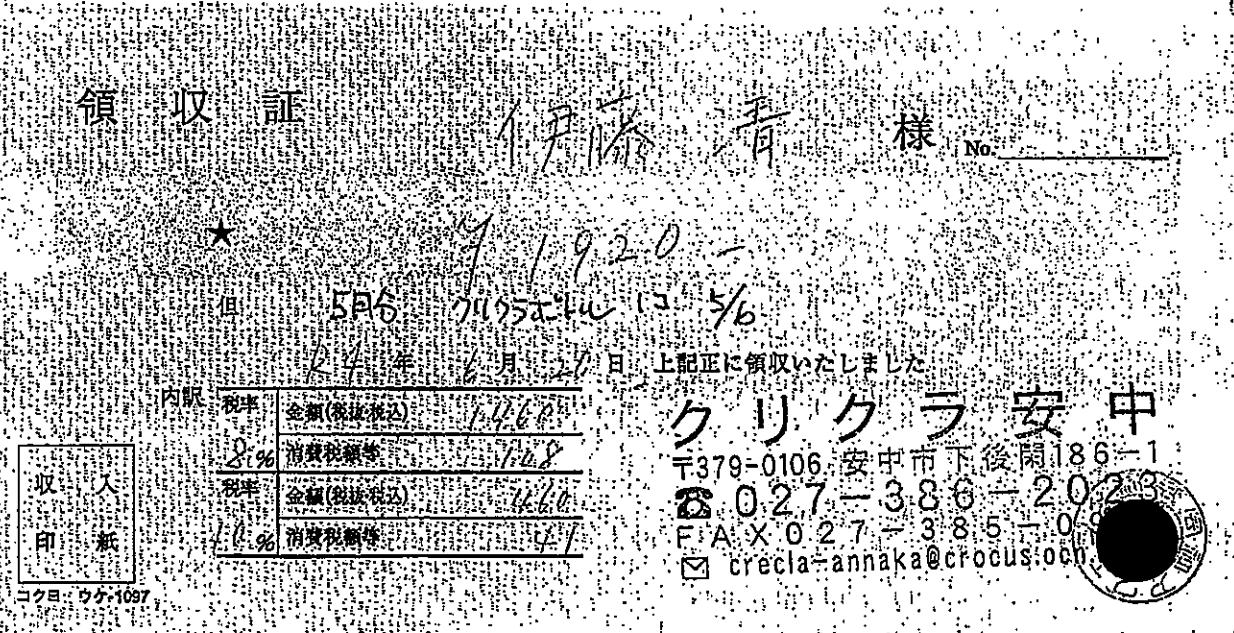 領収証 伊藤 清 様 No.
★ ¥1920-
但 5月分 クリクラボトル 1コ 5/6
R4年 6月 日 上記正に領収いたしました
内訳
税率 金額(税抜・税込) 1460
8% 消費税額等 108
税率 金額(税抜・税込) 460
10% 消費税額等 41
収入
印紙
コクヨ ウケ-1097
クリクラ安中
〒379-0106 安中市下後閑186-1
☎027-386-2023
FAX027-385-0
✉ crecla-annaka@crocus.ocn